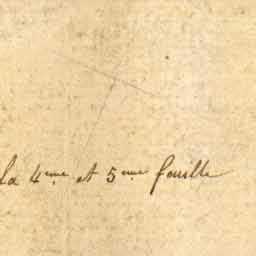 la 4eme et 5eme fouille